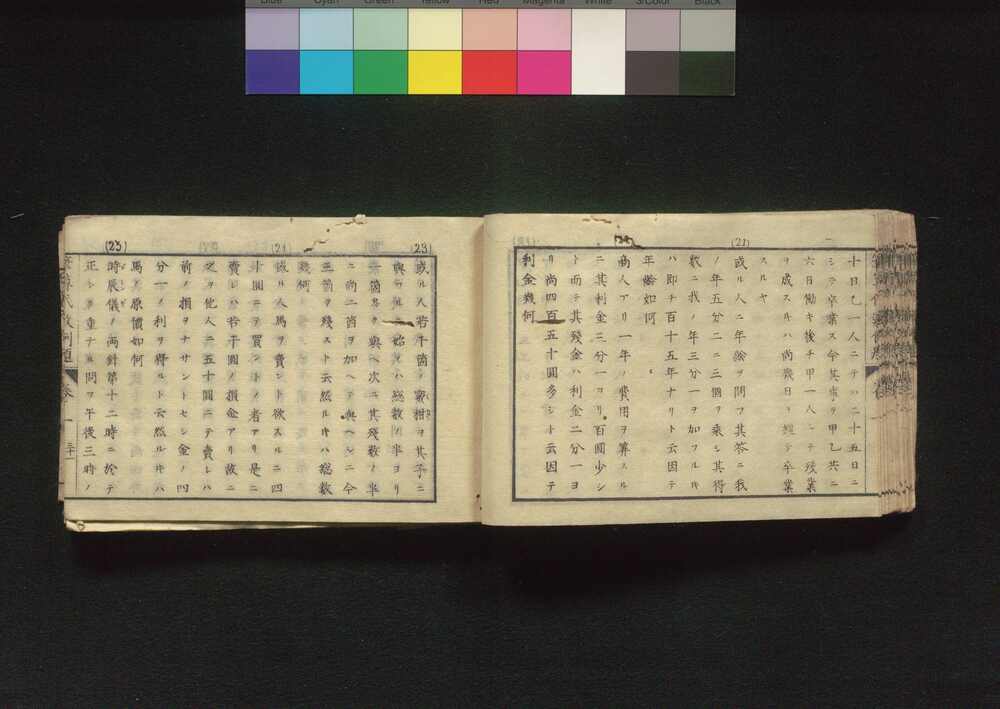 Blue Cyan Green Yellow Red Magenta White 3/Color Black
十日乙一人ニテハ二十五日ニ
シテ卒業ス今其事ヲ甲乙共ニ
六日働キ後チ甲一人ニテ残業
ヲ成スルハ尚幾日ヲ經テ卒業
スルヤ
(21)
或ル人ニ年齢ヲ問フ其答ニ我
ノ年五分二ニ三個ヲ乘シ其得
數ニ我ノ年三分一ヲ加フルキ
ハ即チ百十五年ナリト云因テ
年齢如何
商人アリ一年ノ費用ヲ算スル
ニ其利金三分一ヨリ百圓少シ
ト而テ其殘金ハ利金二分一ヨ
リ尚四百五十圓多シト云因テ
利金幾何
(23)
或ル人若干箇ノ蜜柑ヲ其子ニ
與ヘ始メハ總數ノ半ヨリ
一箇多ク與ヘ次ニ其殘數ノ半
ニ尚二箇ヲ加ヘテ與ヘシニ今
三箇ヲ殘スト云然ルキハ總數
幾何
(24)
或ル人馬ヲ賣ント欲スルニ四
十圓ニテ買ントノ者アリ是ニ
賣レハ若干圓ノ損金アリ故ニ
之ヲ他人ニ五十圓ニテ賣レハ
前ノ損ヲナサントセシ金ノ四
分一ノ利ヲ得ルト云然ルキハ
馬ノ原價如何
(25)
時辰儀ノ両針第十二時ニ於テ
正シク重ナル問フ午後三時ノ